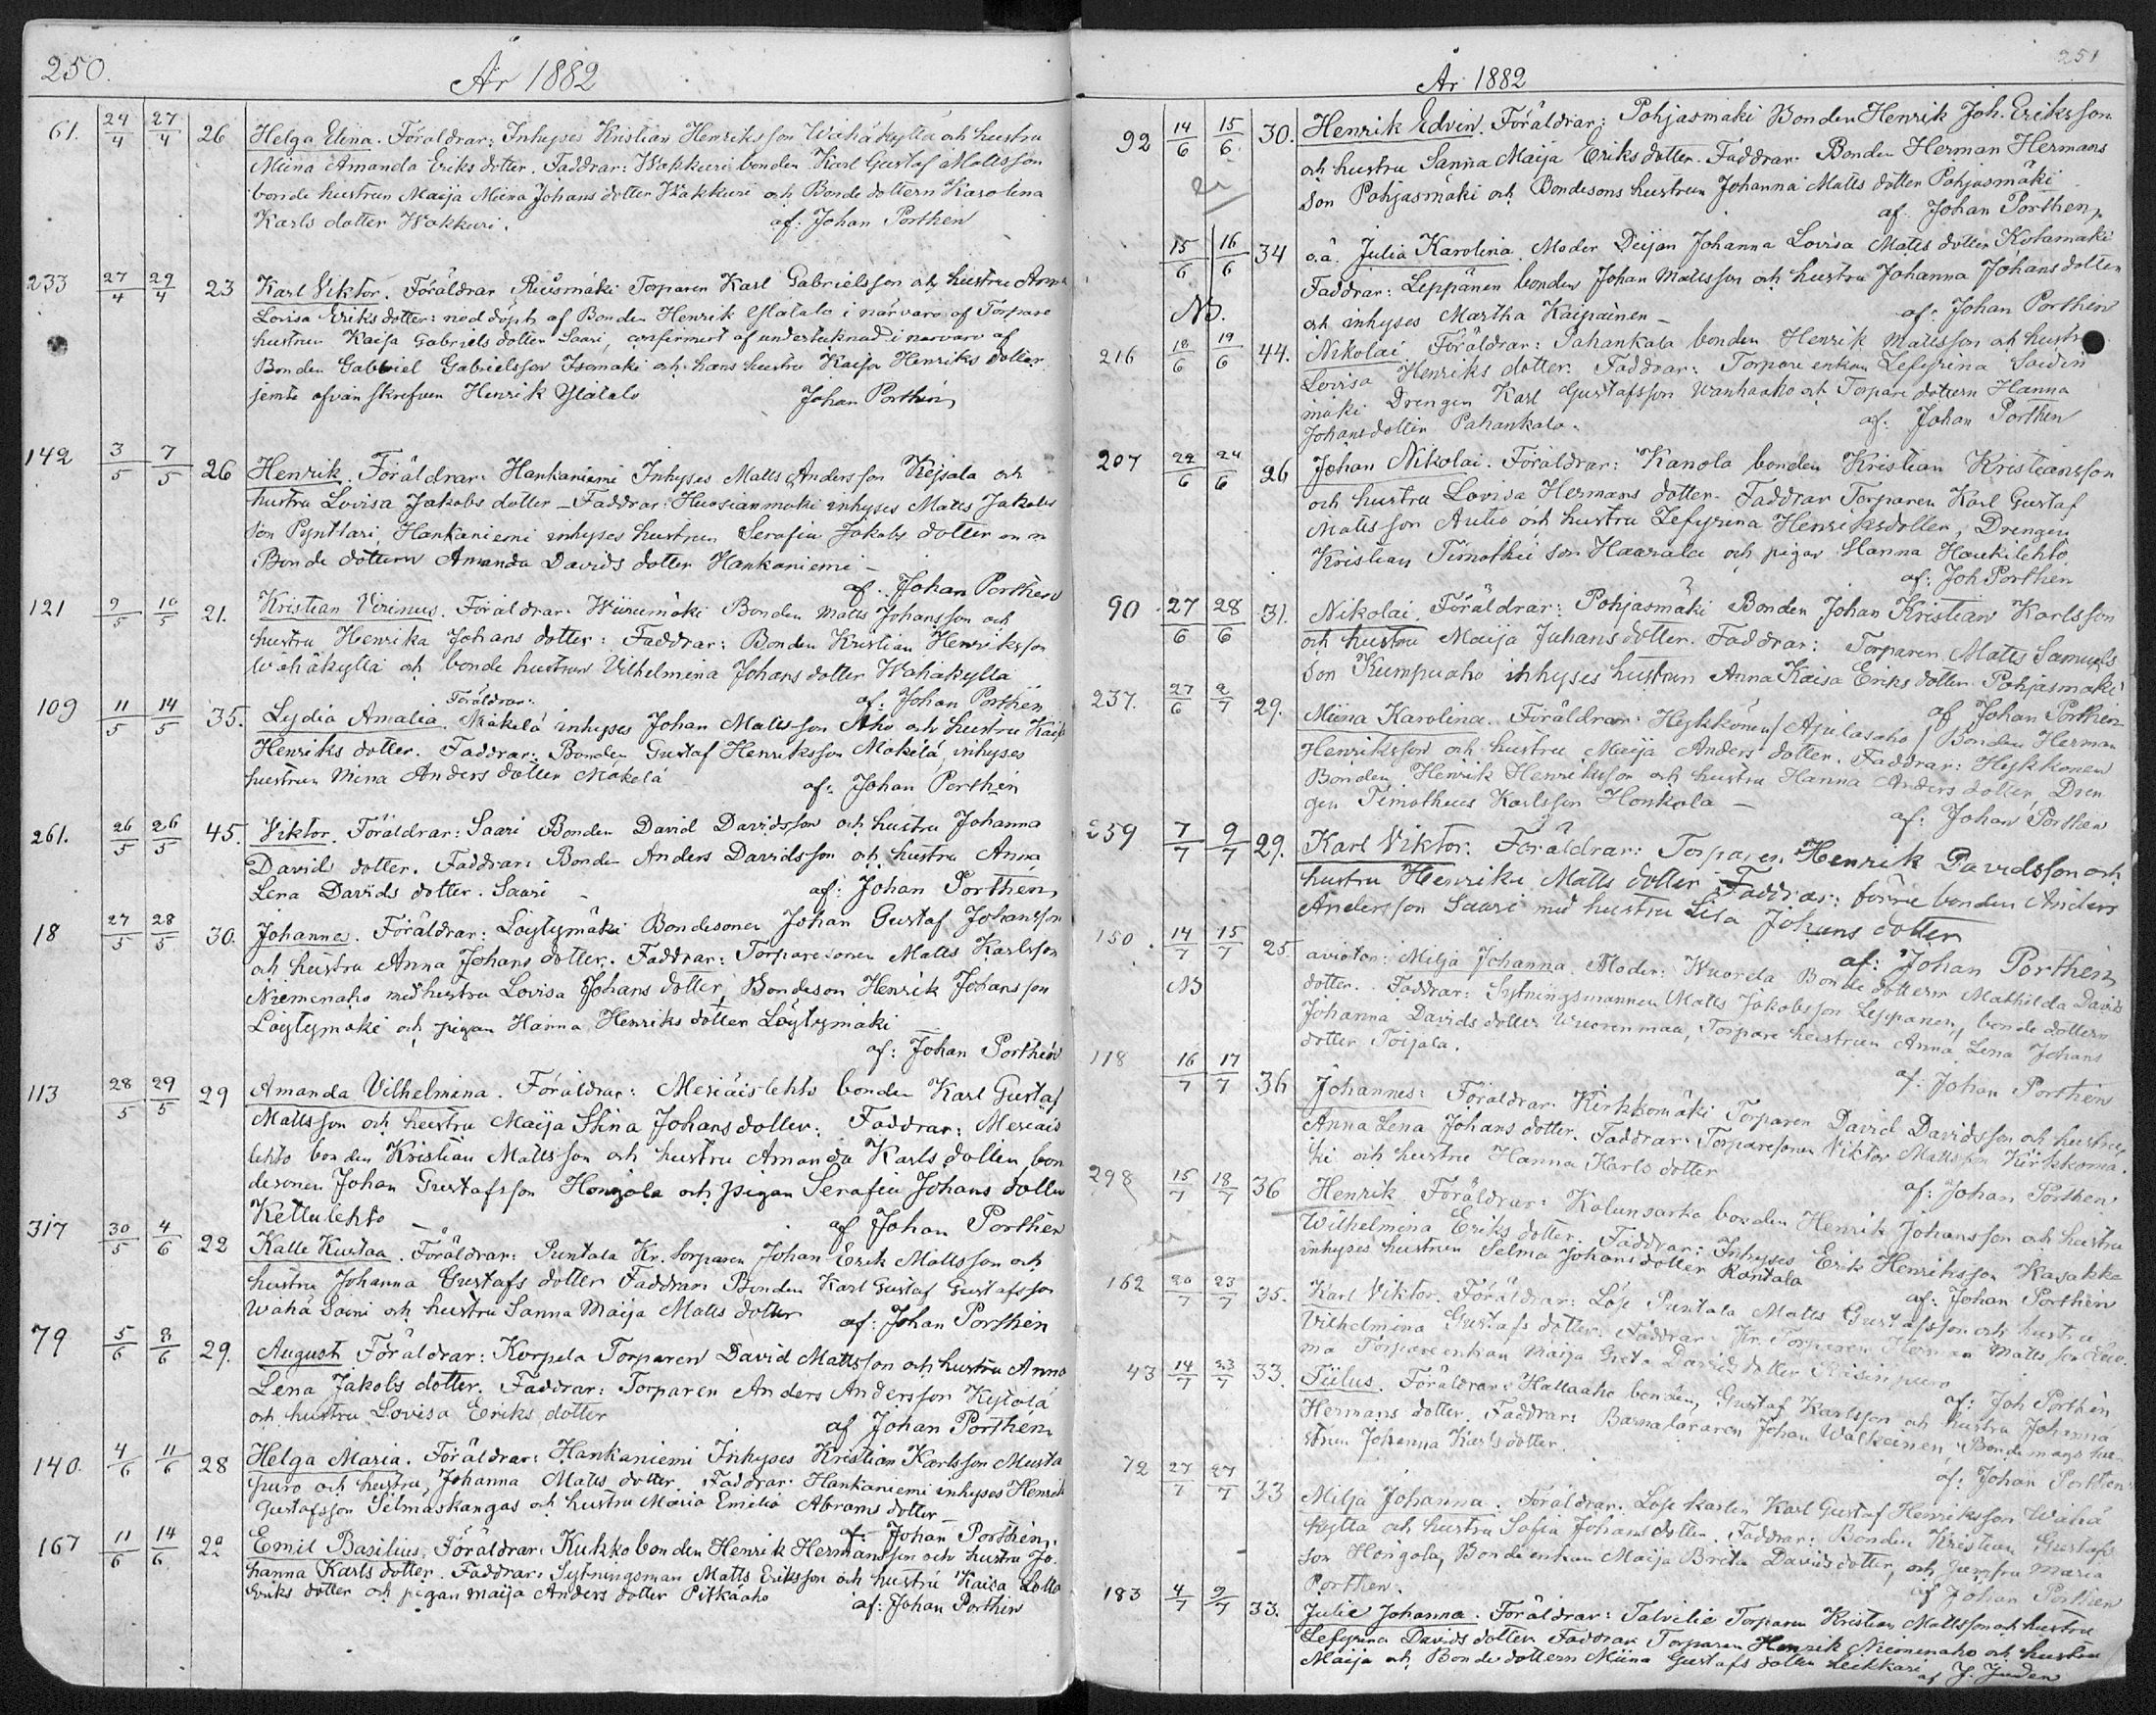 250.
År 1882
61. 24/4 27/4 26 Helga Elina. Föräldrar: Inhyses Kristian Henriksson Wähäkyllä och hustru
Miina Amanda Eriks dotter. Faddrar: Wakkuri bonden Karl Gustaf Mattsson
bonde hustrun Maija Miina Johans dotter Wakkuri och Bonde dottern Karolina
Karls dotter Wakkuri. af: Johan Porthen
233 27/4 29/4 23 Karl Viktor. Föräldrar Torparen Karl Gabrielsson och hustru Anna
Lovisa Eriks dotter: nöd döpt af Bonden Henrik Ylätalo i närvaro af Torpare
hustrun Kaisa Gabriels dotter Saari, confirmert af undertecknad i närvaro af
Bonden Gabriel Gabrielsson Isomäki och hans hustru Kaisa Henriks dotter
jemte ofvan skrefven Henrik Ylätalo Johan Porthen
142 3/5 7/5 26 Henrik. Föräldrar: Hankaniemi Inhyses Matts Andersson och
hustru Lovisa Jakobs dotter – Faddrar: inhyses Matts Jakobs
son Pynttäri, Hankaniemi inhyses hustrun Serafia Jakobs dotter
Bonde dottern Amanda Davids dotter Hankaniemi –
af: Johan Porthen
121 9/5 10/5 21. Kristian Virinus. Föräldrar: Wiinimäki Bonden Matts Johansson och
hustru Henrika Johans dotter: Faddrar: Bonden Kristian Henriksson
Wähäkyllä och bonde hustrun Vilhelmina Johans dotter Wähäkyllä
af: Johan Porthen
Föräldrar:
109 11/5 14/5 35. Lydia Amalia. Mäkelä inhyses Johan Mattsson Aho och hustru Kaisa
Henriks dotter. Faddrar: Bonden Gustaf Henriksson Mäkelä, inhyses
hustrun Mina Anders dotter Mäkelä af: Johan Porthen
261. 26/5 26/5 45. Viktor. Föräldrar: Saari Bonden David Davidsson och hustru Johanna
David dotter. Faddrar: Bonden Anders Davidsson och hustru Anna
Lena Davids dotter. Saari – af: Johan Porthen
18 27/5 28/5 30. Johannes. Föräldrar: Löytymäki Bondesonen Johan Gustaf Johansson
och hustru Anna Johans dotter. Faddrar: Torparesonen Matts Karlsson
Niemenaho med hustru Lovisa Johans dotter, Bondeson Henrik Johansson
Löytymäki och pigan Hanna Henriks dotter Löytymäki
af: Johan Porthen
113 28/5 29/5 29 Amanda Vilhelmina. Föräldrar: Mesiäislehto bonden Karl Gustaf
Mattsson och hustru Maija Stina Johans dotter. Faddrar: Mesiäis
lehto bonden Kristian Mattsson och hustru Amanda Karls dotter, bon
desonen Johan Gustafsson Hongola och pigan Serafia Johans dotter
Kettulehto – af Johan Porthen
317 30/5 4/6 22 Kalle Kustaa. Föräldrar: Puntala Kr. torparen Johan Erik Mattsson och
hustru Johanna Gustafs dotter Faddrar: Bonden Karl Gustaf Gustafsson
Wähä Soini och hustru Sanna Maija Matts dotter af: Johan Porthen
79 5/6 8/6 29. August. Föräldrar: Korpela Torparen David Mattsson och hustru Anna
Lena Jakobs dotter. Faddrar: Torparen Anders Andersson Kylölä
och hustru Lovisa Eriks dotter af Johan Porthen
140. 4/6 11/6 28 Helga Maria. Föräldrar: Hankaniemi Inhyses Kristian Karlsson Musta
puro och hustru, Johanna Matts dotter. Faddrar: Hankaniemi inhyses Henrik
Gustafsson Silmäskangas och hustru Maria Emilia Abrams dotter
af: Johan Porthen.
167 11/6 14/6 22 Emil Basilius. Föräldrar: Kuhko bonden Henrik Hermansson och hustru Jo-
hanna Karls dotter. Faddrar: Sytningsman Matts Eriksson och hustru Kaisa Lotta
Eriks dotter och pigan Maija Anders dotter Pitkäaho af: Johan Porthen
251
År 1882
92 14/6 15/6 30. Henrik Edvin. Föräldrar: Pohjasmäki Bonden Henrik Joh. Eriksson
och hustru Sanna Maija Eriks dotter. Faddrar: Bonden Herman Hermans
son Pohjasmäki och Bondesons hustrun Johanna Matts dotter Pohjasmäki
af Johan Porthen
15/6 16/6 34 o.ä. Julia Karolina. Moder Deijan Johanna Lovisa Matts dotter Kotamäki
Faddrar: Leppänen bonden Johan Mattsson och hustru Johanna Johans dotter
NB. och inhyses Martha Kaipainen – af: Johan Porthen
216 18/6 19/6 44. Nikolai. Föräldrar: Pahankala bonden Henrik Mattsson och hustru
Lovisa Henriks dotter. Faddrar: Torpare enkan Zefyrina Saidin
mäki Drengen Karl Gustafsson Wanhaaho och Torpare dottern Hanna
Johansdotter Pahankala. af: Johan Porthen
207 22/6 24/6 26 Johan Nikolai. Föräldrar: Kanola bonden Kristian Kristiansson
och hustru Lovisa Hermans dotter. Faddrar Torparen Karl Gustaf
Mattsson Autio och hustru Zefyrina Henriksdotter, Drengen
Kristian Timotheé son Haarala och pigan Hanna Haukilehto
af: Joh Porthen
90 27/6 28/6 31. Nikolai. Föräldrar: Pohjasmäki Bonden Johan Kristian Karlsson
och hustru Maija Juhans dotter. Faddrar: Torparen Matts Samuels
son Kumpuaho inhyses hustrun Anna Kaisa Eriks dotter Pohjasmäki
af Johan Porthen
237. 27/6 2/7 29. Miina Karolina. Föräldrar: Hykkönen / Ajulasaho / Bonden Herman
Henriksson och hustru Maija Anders dotter. Faddrar: Hykkönen
Bonden Henrik Henriksson och hustru Hanna Anders dotter, Dren
gen Timotheus Karlsson Honkola –
af: Johan Porthen
259 7/7 9/7 29. Karl Viktor. Föräldrar: Torparen Henrik Davidsson och
hustru Henrika Matts dotter. Faddrar: förre bonden Anders
Andersson Saari med hustru Lisa Johans dotter
af: Johan Porthen
150. 14/7 15/7 25. avioton: Milja Johanna. Moder: Wuorela Bonde dottern Mathilda Davids
NB dotter. Faddrar: Sytningsmannen Matts Jakobsson Leppänen, bonde dottern
Johanna Davids dotter Wuorenmaa, Torpare hustrun Anna Lena Johans
dotter Toijala. af: Johan Porthen
118 16/7 17/7 36 Johannes: Föräldrar: Kirkkomäki Torparen David Davidsson och hustru
Anna Lena Johans dotter. Faddrar: Torparesonen Viktor Mattsson Kirkkomä-
ki och hustru Hanna Karls dotter
af: Johan Porthen
298 15/7 18/7 36 Henrik. Föräldrar: Kolunsarka bonden Henrik Johansson och hustru
Wilhelmina Eriks dotter. Faddrar: Inhyses Erik Henriksson Kasakka
inhyses hustrun Selma Johans dotter Rantala
af: Johan Porthen
162 20/7 23/7 35. Karl Viktor. Föräldrar: Löje Puntala Matts Gustafsson och hustru
Vilhelmina Gustafs dotter. Faddrar: Kr. Torparen Herman Mattsson
ma Torpare enkan Maija Greta Davids dotter
af: Joh Porthen
43 14/7 23/7 33. Tiilus. Föräldrar: Hallaaho bonden, Gustaf Karlsson och hustru Johanna
Hermans dotter. Faddrar: Barnaläraren Johan Walkeinen, Bonde mågs hu-
strun Johanna Karls dotter.
af: Johan Porthen
72 27/7 27/7 33 Milja Johanna. Föräldrar: Löse karlen Karl Gustaf Henriksson Wähä
kyllä och hustru Sofia Johans dotter. Faddrar: Bonden Kristian Gustafs
son Hongola, Bondeenkan Maija Brita Davids dotter, och Jungfru Maria
Porthen. af Johan Porthen
183 4/7 9/7 33. Julie Johanna. Föräldrar: Talvilie Torparen Kristian Mattsson och hustru
Zefyrina Davids dotter Faddrar Torparen Henrik Niemenaho och hustru
Maija och Bonde dottern Miina Gustafs dotter Leikkari
af J.